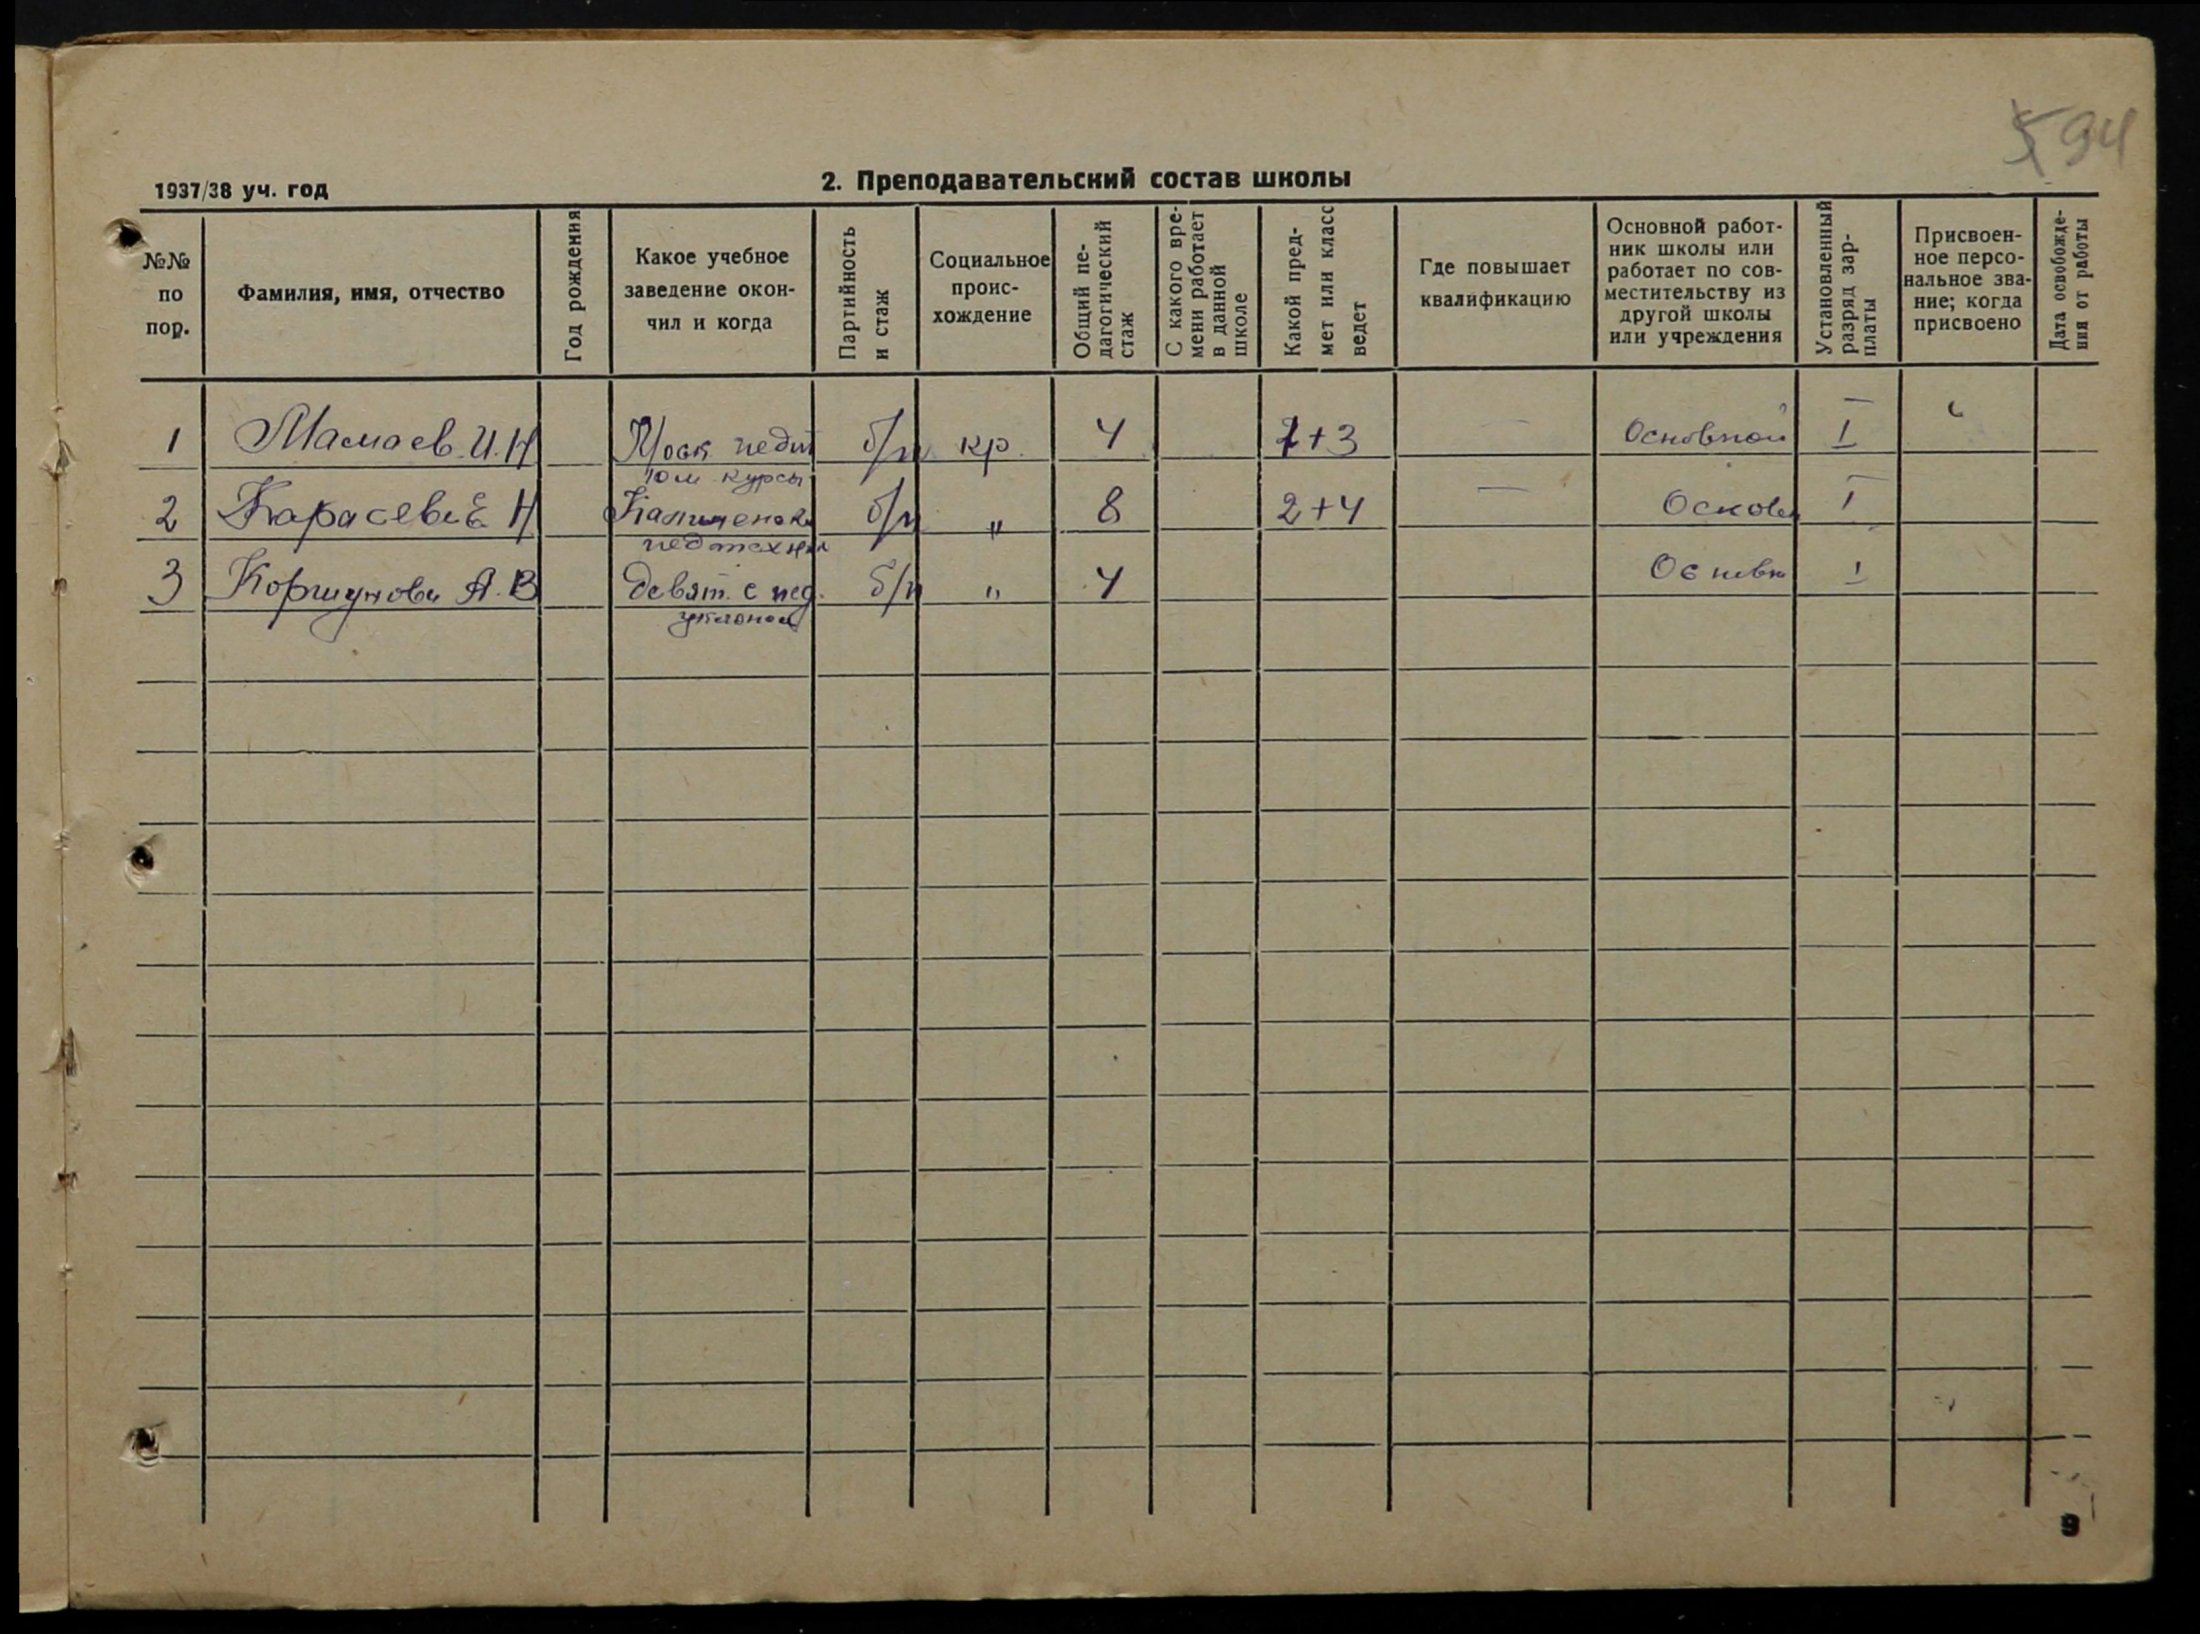 594
1937/38 уч. год
2. Преподавательский состав школы
№№ по пор.
Фамилия, имя, отчество
Год рождения
Какое учебное заведение окончил и когда
Партийность и стаж
Социальное происхождение
Общий педагогический стаж
С какого времени работает в данной школе
Какой предмет или класс ведет
Где повышает квалификацию
Основной работник школы или работает по совместительству из другой школы или учреждения
Установленный разряд зарплаты
Присвоенное персональное звание; когда присвоено
Дата освобождения от работы
1 Мамаев И.Н Моск педин б/п кр. 4 1+3 — Основной I
10 м курсы
2 Карасева Е Н б/п " 8 2+4 — Основн I
педтехни
3 Коршунова А. В девят. с пед. б/п " 4 Основн I
уклоном
9